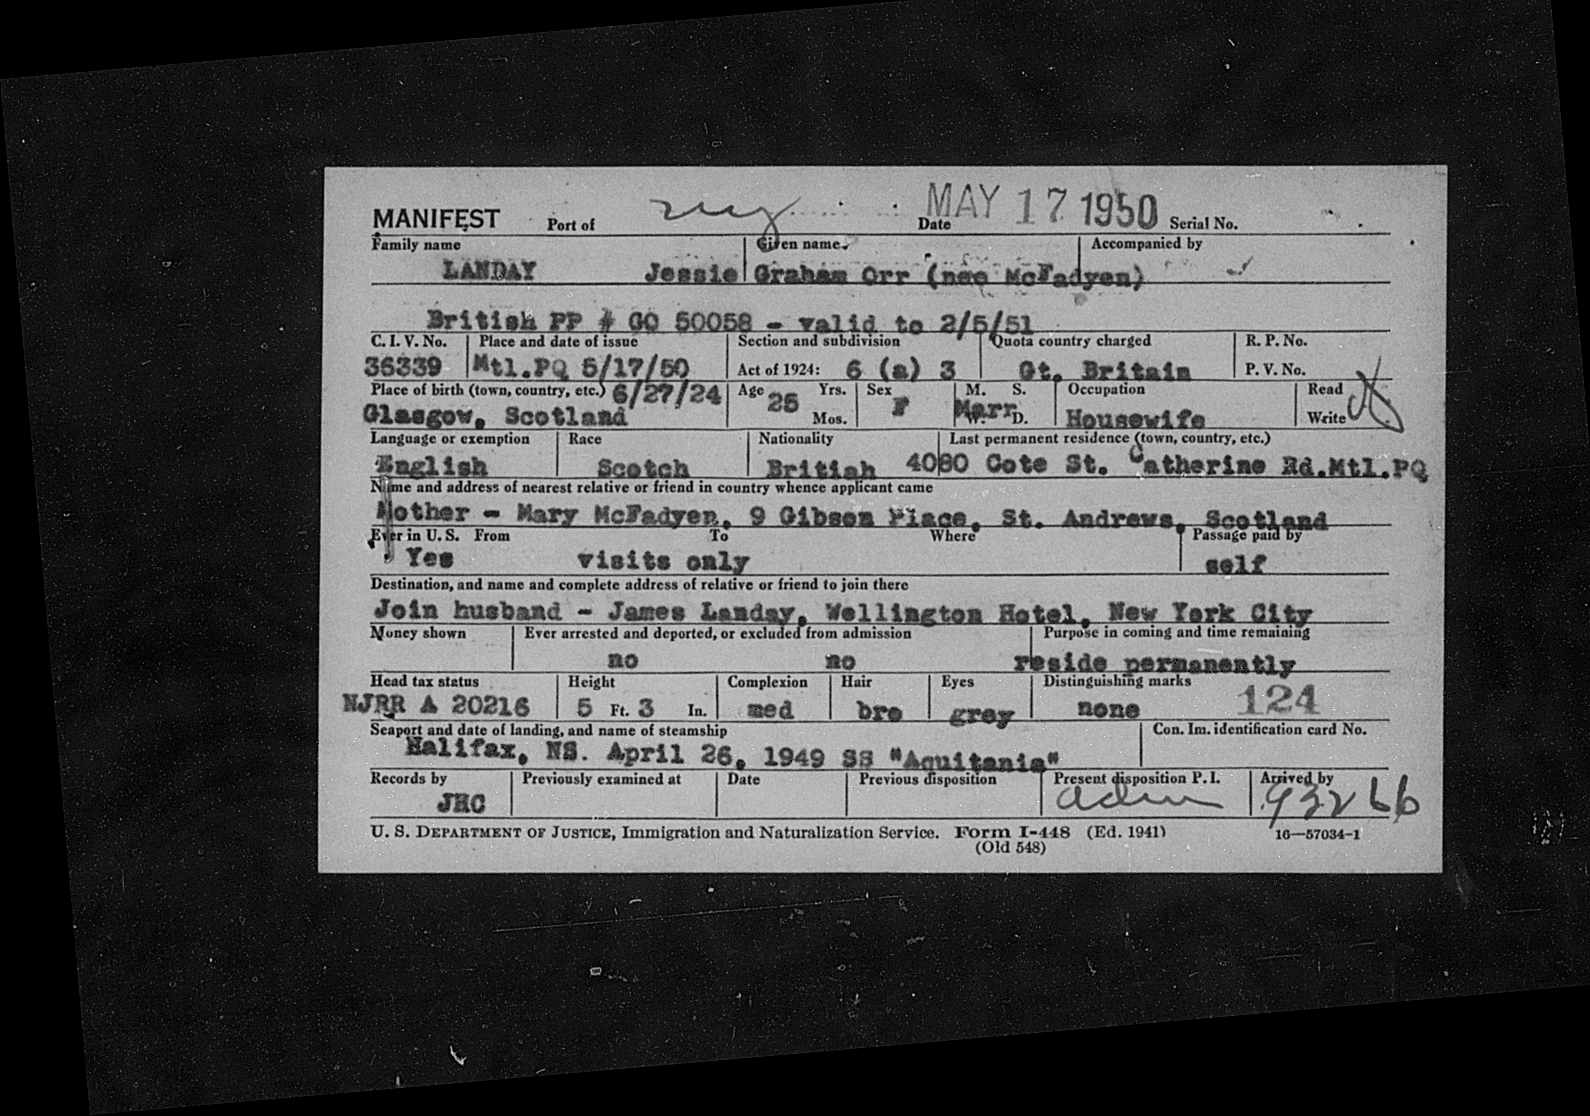 MANIFEST Port of Date MAY 17 1950 Serial No.
Family name Given name Accompanied by
LANDAY Jessie Graham Orr (nee McFadyen)
British PP # GO 50058 - valid to 2/5/51
C. I. V. No. Place and date of issue Section and subdivision Quota country charged R. P. No.
36339 Mtl.PQ 5/17/50 Act of 1924: 6 (a) 3 Gt. Britain P. V. No.
Place of birth (town, country, etc.) 6/27/24 Age 25 Yrs. Sex M. S. Occupation Read
Glasgow, Scotland Mos. F Marr W. D. Housewife Write
Language or exemption Race Nationality Last permanent residence (town, country, etc.)
English Scotch British 4080 Cote St. Catherine Rd.Mtl.PQ
Name and address of nearest relative or friend in country whence applicant came
Mother - Mary McFadyen, 9 Gibson Place, St. Andrews, Scotland
Ever in U. S. From To Where Passage paid by
Yes visits only self
Destination, and name and complete address of relative or friend to join there
Join husband - James Landay, Wellington Hotel, New York City
Money shown Ever arrested and deported, or excluded from admission Purpose in coming and time remaining
no no reside permanently
Head tax status Height Complexion Hair Eyes Distinguishing marks
NJRR A 20216 5 Ft. 3 In. med bro grey none 124
Seaport and date of landing, and name of steamship Con. Im. identification card No.
Halifax, NS. April 26, 1949 SS "Aquitania"
Records by Previously examined at Date Previous disposition Present disposition P. I. Arrived by
JHC adm
U. S. DEPARTMENT OF JUSTICE, Immigration and Naturalization Service. Form I-448 (Ed. 1941) 16—57034-1
(Old 548)